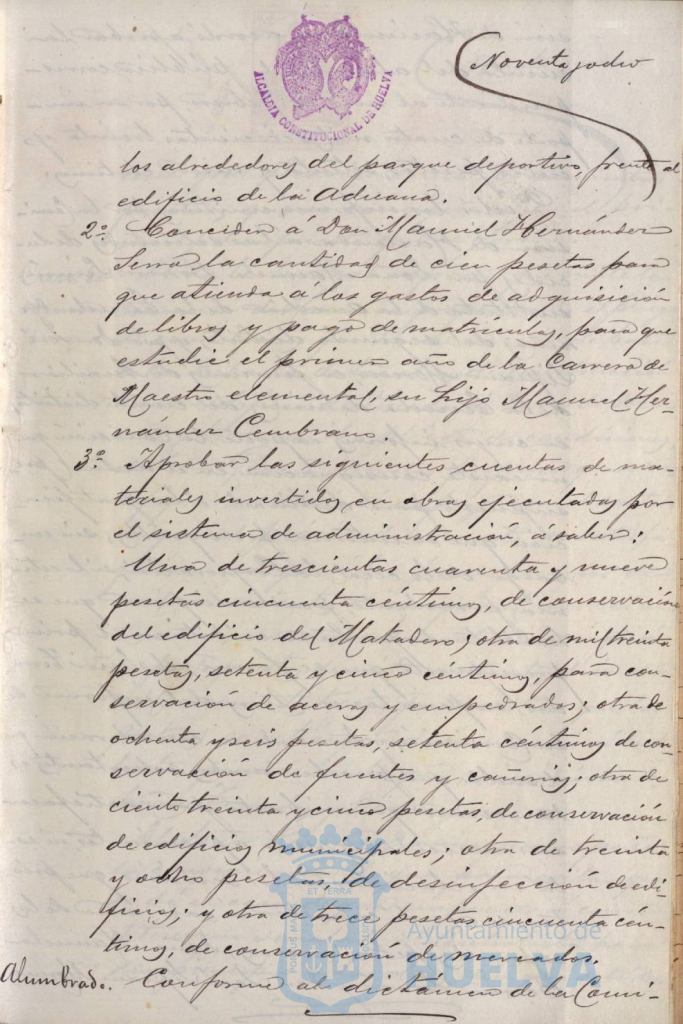 ALCALDIA CONSTITUCIONAL DE HUELVA
Noventa y ocho
los alrededores del parque deportivo, frente al
edificio de la Aduana.
2º. Conceder á Don Manuel Hernández
Serra la cantidad de cien pesetas para
que atienda á los gastos de adquisición
de libros y pago de matrículas, para que
estudie el primer año de la Carrera de
Maestro elemental, su hijo Manuel Her-
nández Cembrano.
3º. Aprobar las siguientes cuentas de ma-
teriales invertidos en obras ejecutadas por
el sistema de administración, á saber:
Una de trescientas cuarenta y nueve
pesetas cincuenta céntimos, de conservación
del edificio del Matadero; otra de mil treinta
pesetas, setenta y cinco céntimos, para con-
servación de aceras y empedrados; otra de
ochenta y seis pesetas, setenta céntimos de con-
servación de fuentes y cañerias; otra de
ciento treinta y cinco pesetas, de conservación
de edificios municipales; otra de treinta
y ocho pesetas, de desinfección de edi-
ficios; y otra de trece pesetas cincuenta cén-
timos, de conservación de mercados.
Alumbrado. Conforme al dictámen de la Comi-
Ayuntamiento de
HUELVA